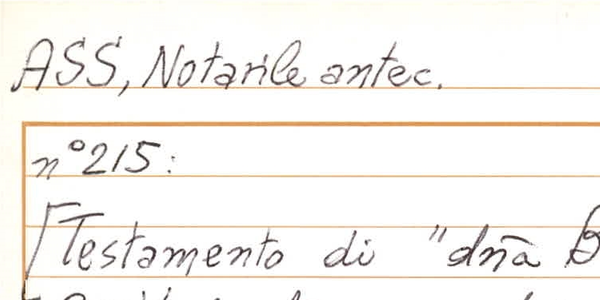 ASS, Notarile antec.
n° 215:
[Testamento di "dña B